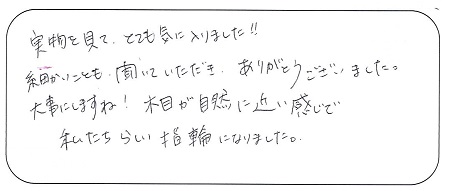 実物を見て、とても気に入りました!!
細かいことも、聞いていただき、ありがとうございました。
大事にしますね! 木目が自然に近い感じで
私たちらしい指輪になりました。